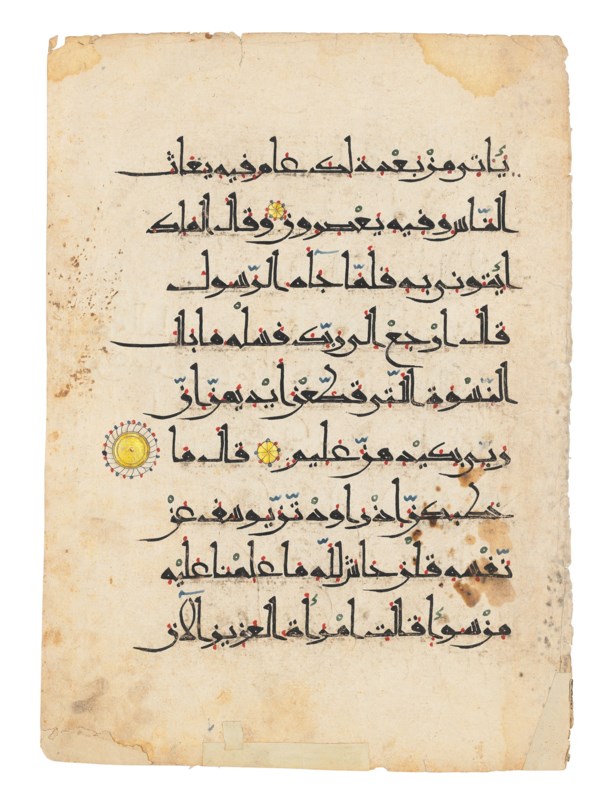 يَأْتِي مِنْ بَعْدِ ذَلِكَ عَامٌ فِيهِ يُغَاثُ
النَّاسُ وَفِيهِ يَعْصِرُونَ وَقَالَ الْمَلِكُ
ائْتُونِي بِهِ فَلَمَّا جَآءَهُ الرَّسُولُ
قَالَ ارْجِعْ إِلَى رَبِّكَ فَسْئَلْهُ مَا بَالُ
النِّسْوَةِ الَّتِي قَطَّعْنَ أَيْدِيَهُنَّ إِنَّ
رَبِّي بِكَيْدِهِنَّ عَلِيمٌ قَالَ مَا
خَطْبُكُنَّ إِذْ رَاوَدْتُّنَّ يُوسُفَ عَنْ
نَّفْسِهِ قُلْنَ حَاشَ لِلَّهِ مَا عَلِمْنَا عَلَيْهِ
مِنْ سُوءٍ قَالَتِ امْرَأَةُ الْعَزِيزِ الْآنَ